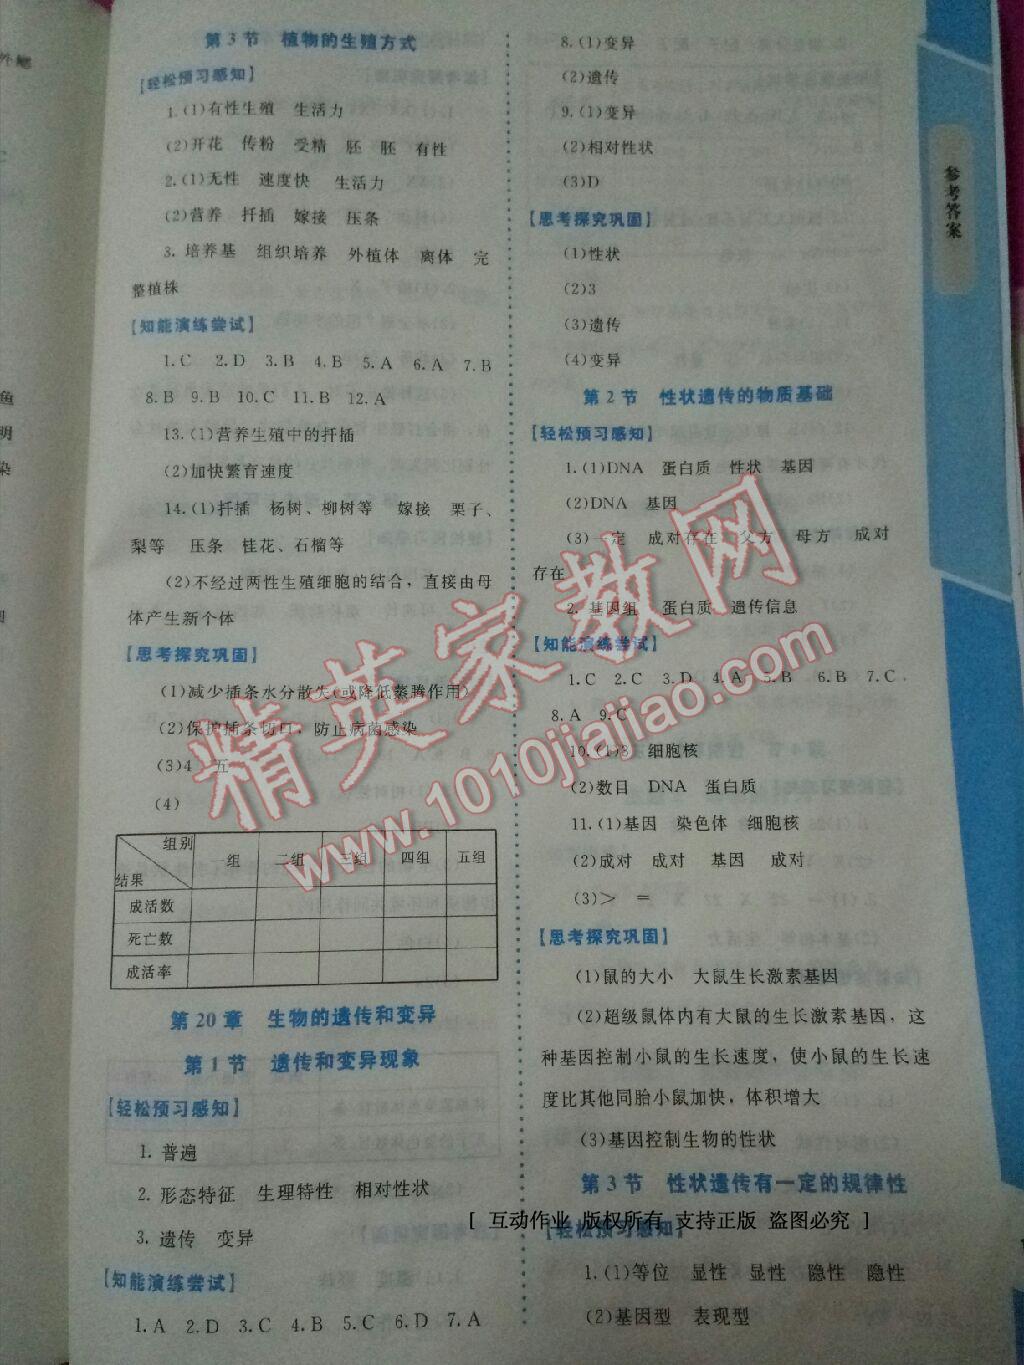 第3节 植物的生殖方式
【轻松预习感知】
1.(1)有性生殖 生活力
(2)开花 传粉 受精 胚 胚 有性
2.(1)无性 速度快 生活力
(2)营养 扦插 嫁接 压条
3. 培养基 组织培养 外植体 离体 完
整植株
【知能演练尝试】
1.C 2.D 3.B 4.B 5.A 6.A 7.B
8.B 9.B 10.C 11.B 12.A
13.(1)营养生殖中的扦插
(2)加快繁育速度
14.(1)扦插 杨树、柳树等 嫁接 栗子、
梨等 压条 桂花、石榴等
(2)不经过两性生殖细胞的结合，直接由母
体产生新个体
【思考探究巩固】
(1)减少插条水分散失(或降低蒸腾作用)
(2)保护插条切口，防止病菌感染
(3)4 五
(4)
组别 组 二组 三组 四组 五组
结果
成活数
死亡数
成活率
第20章 生物的遗传和变异
第1节 遗传和变异现象
【轻松预习感知】
1. 普遍
2. 形态特征 生理特性 相对性状
3. 遗传 变异
【知能演练尝试】
1.A 2.D 3.C 4.B 5.C 6.D 7.A
8.(1)变异
(2)遗传
9.(1)变异
(2)相对性状
(3)D
【思考探究巩固】
(1)性状
(2)3
(3)遗传
(4)变异
第2节 性状遗传的物质基础
【轻松预习感知】
1.(1)DNA 蛋白质 性状 基因
(2)DNA 基因
(3)一定 成对存在 父方 母方 成对
存在
2. 基因组 蛋白质 遗传信息
【知能演练尝试】
1.C 2.C 3.D 4.A 5.B 6.B 7.C
8.A 9.C
10.(1)3 细胞核
(2)数目 DNA 蛋白质
11.(1)基因 染色体 细胞核
(2)成对 成对 基因 成对
(3)> =
【思考探究巩固】
(1)鼠的大小 大鼠生长激素基因
(2)超级鼠体内有大鼠的生长激素基因，这
种基因控制小鼠的生长速度，使小鼠的生长速
度比其他同胎小鼠加快，体积增大
(3)基因控制生物的性状
第3节 性状遗传有一定的规律性
[ 互动作业 版权所有 支持正版 盗图必究 ]
【轻松预习感知】
1.(1)等位 显性 显性 隐性 隐性
(2)基因型 表现型
参考答案
精英家教网
www.1010jiajiao.com
外翅
鱼
明
染